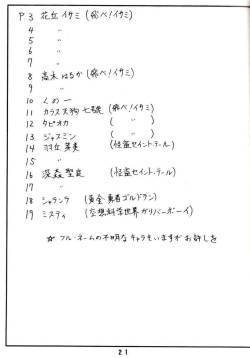 P 3 花丘 イサミ (飛べ!イサミ)
4 〃
5 〃
6 〃
7 〃
8 高木 はるか (飛べ!イサミ)
9 〃
10 くの一
11 カラス天狗 七號 (飛べ!イサミ)
12 タピオカ ( 〃 )
13 ジャスミン ( 〃 )
14 羽丘 芽美 (怪盗セイント・テール)
15 〃
16 深森 聖良 (怪盗セイント・テール)
17 〃
18 シャランラ (黄金勇者ゴルドラン)
19 ミスティ (空想科学世界ガリバーボーイ)
☆ フル・ネームの不明なキャラもいますがお許しを
21